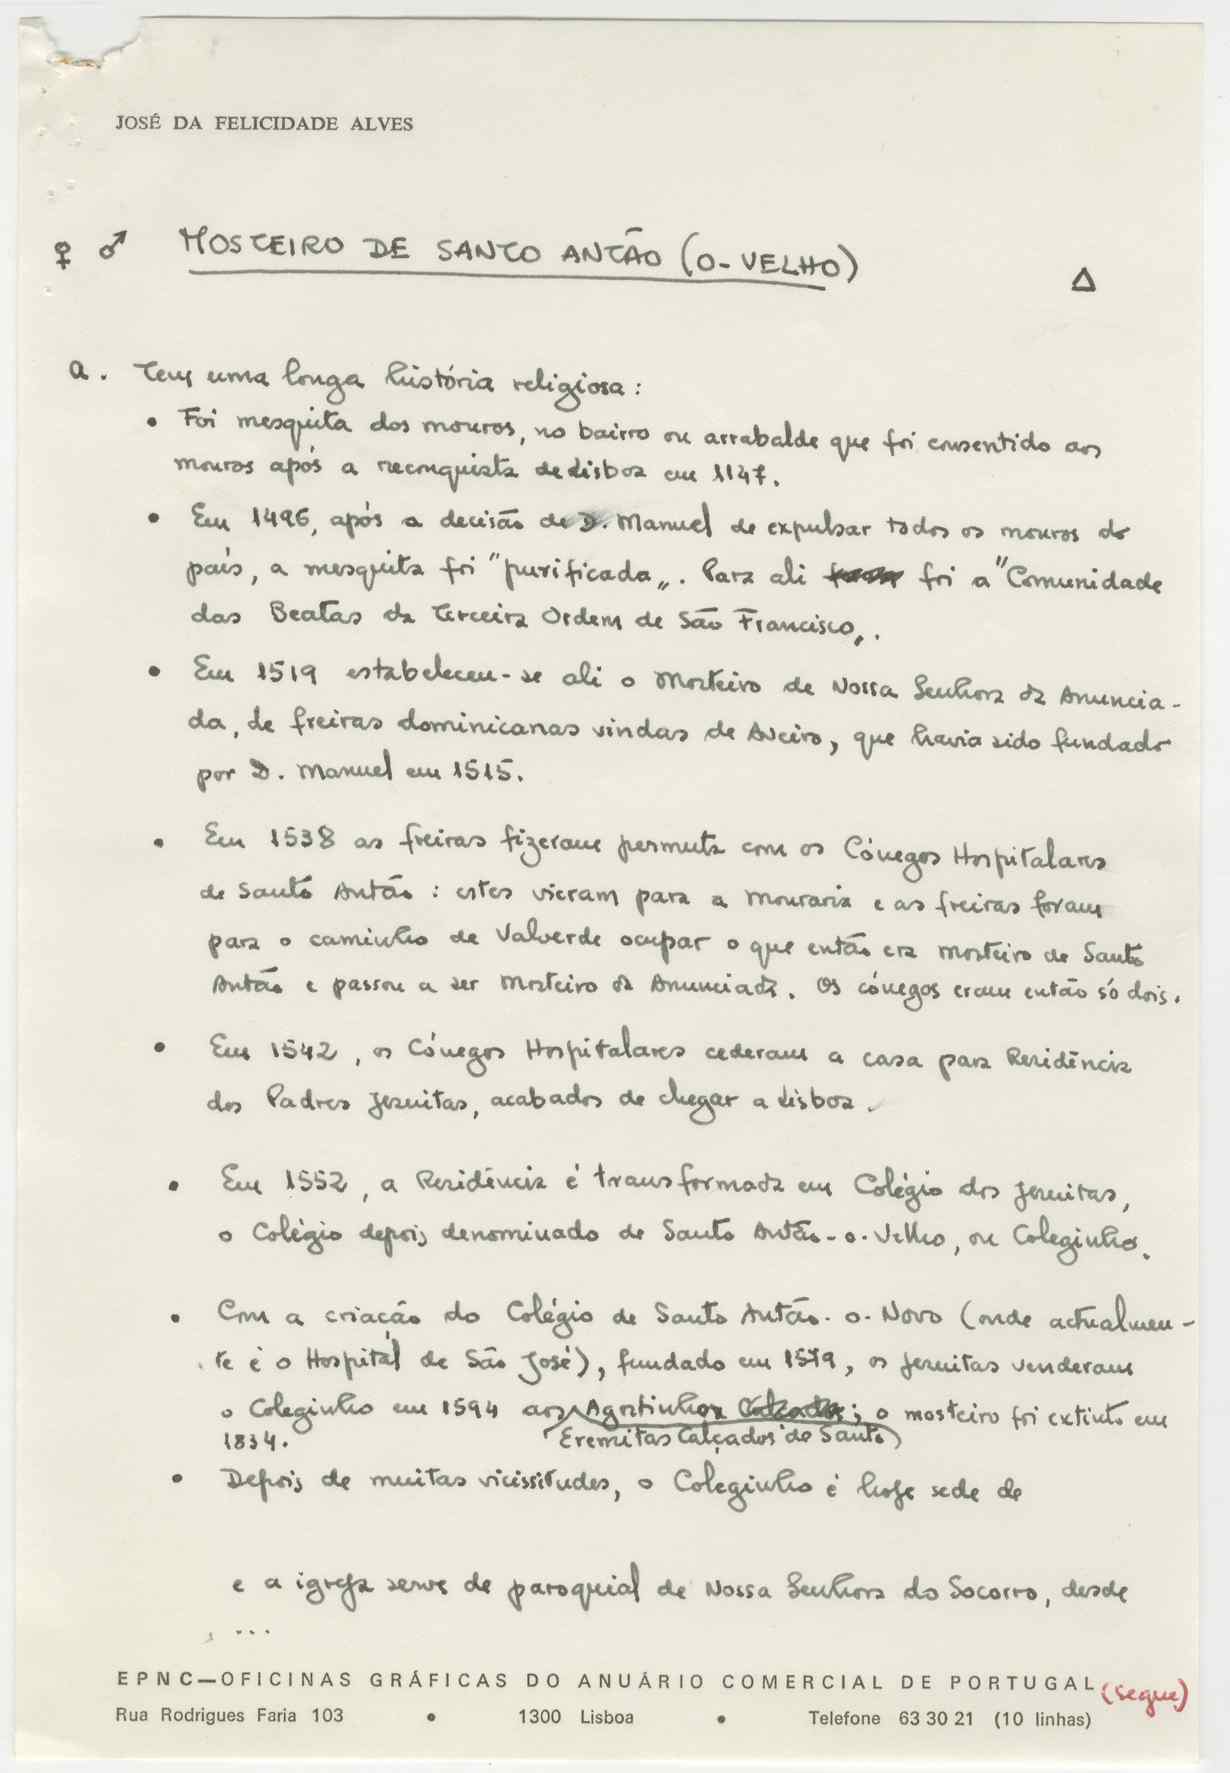 JOSÉ DA FELICIDADE ALVES
♀ ♂ MOSTEIRO DE SANTO ANTÃO (O-VELHO) Δ
a. Tem uma longa história religiosa:
• Foi mesquita dos mouros, no bairro ou arrabalde que foi consentido aos
mouros após a reconquista de Lisboa em 1147.
• Em 1496, após a decisão de D. Manuel de expulsar todos os mouros do
país, a mesquita foi "purificada". Para ali foi a "Comunidade
das Beatas da Terceira Ordem de São Francisco".
• Em 1519 estabeleceu-se ali o Mosteiro de Nossa Senhora da Anuncia-
da, de freiras dominicanas vindas de Aveiro, que havia sido fundado
por D. Manuel em 1515.
• Em 1538 as freiras fizeram permuta com os Cónegos Hospitalares
de Santo Antão: estes vieram para a Mouraria e as freiras foram
para o caminho de Valverde ocupar o que então era mosteiro de Santo
Antão e passou a ser Mosteiro da Anunciada. Os cónegos eram então só dois.
• Em 1542, os Cónegos Hospitalares cederam a casa para Residência
dos Padres Jesuitas, acabados de chegar a Lisboa.
• Em 1552, a Residência é transformada em Colégio dos Jesuitas,
o Colégio depois denominado de Santo Antão-o-Velho, ou Coleginho.
• Com a criação do Colégio de Santo Antão-o-Novo (onde actualmen-
te é o Hospital de São José), fundado em 1579, os Jesuitas venderam
o Coleginho em 1594 aos Agostinhos Calçados; o mosteiro foi extinto em
1834. (Eremitas Calçados de Santo)
• Depois de muitas vicissitudes, o Coleginho é hoje sede de
e a igreja serve de paroquial de Nossa Senhora do Socorro, desde
...
EPNC—OFICINAS GRÁFICAS DO ANUÁRIO COMERCIAL DE PORTUGAL (segue)
Rua Rodrigues Faria 103 • 1300 Lisboa • Telefone 63 30 21 (10 linhas)